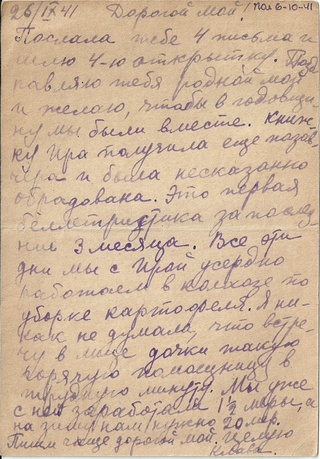 26/IX 41 Дорогой мой! Пол 6-10-41
Послала тебе 4 письма и
шлю 4-ю открытку. Позд
равляю тебя родной мой
и желаю, чтобы в годовщи
ну мы были вместе. Книж-
ку Ира получила еще позав-
чера и была несказанно
обрадована. Это первая
беллетридтика за послед
ние 3 месяца. Все эти
дни мы с Ирой усердно
работаем в колхозе по
уборке картофеля. Я ни-
как не думала, что встре-
чу в лице дочки такую
горячую помощницу в
трудную минуту. Мы уже
с ней заработали 1 1/2 меры, а
на зиму нам нужно 20 мер.
Пиши чаще дорогой мой. Целую
Клава.